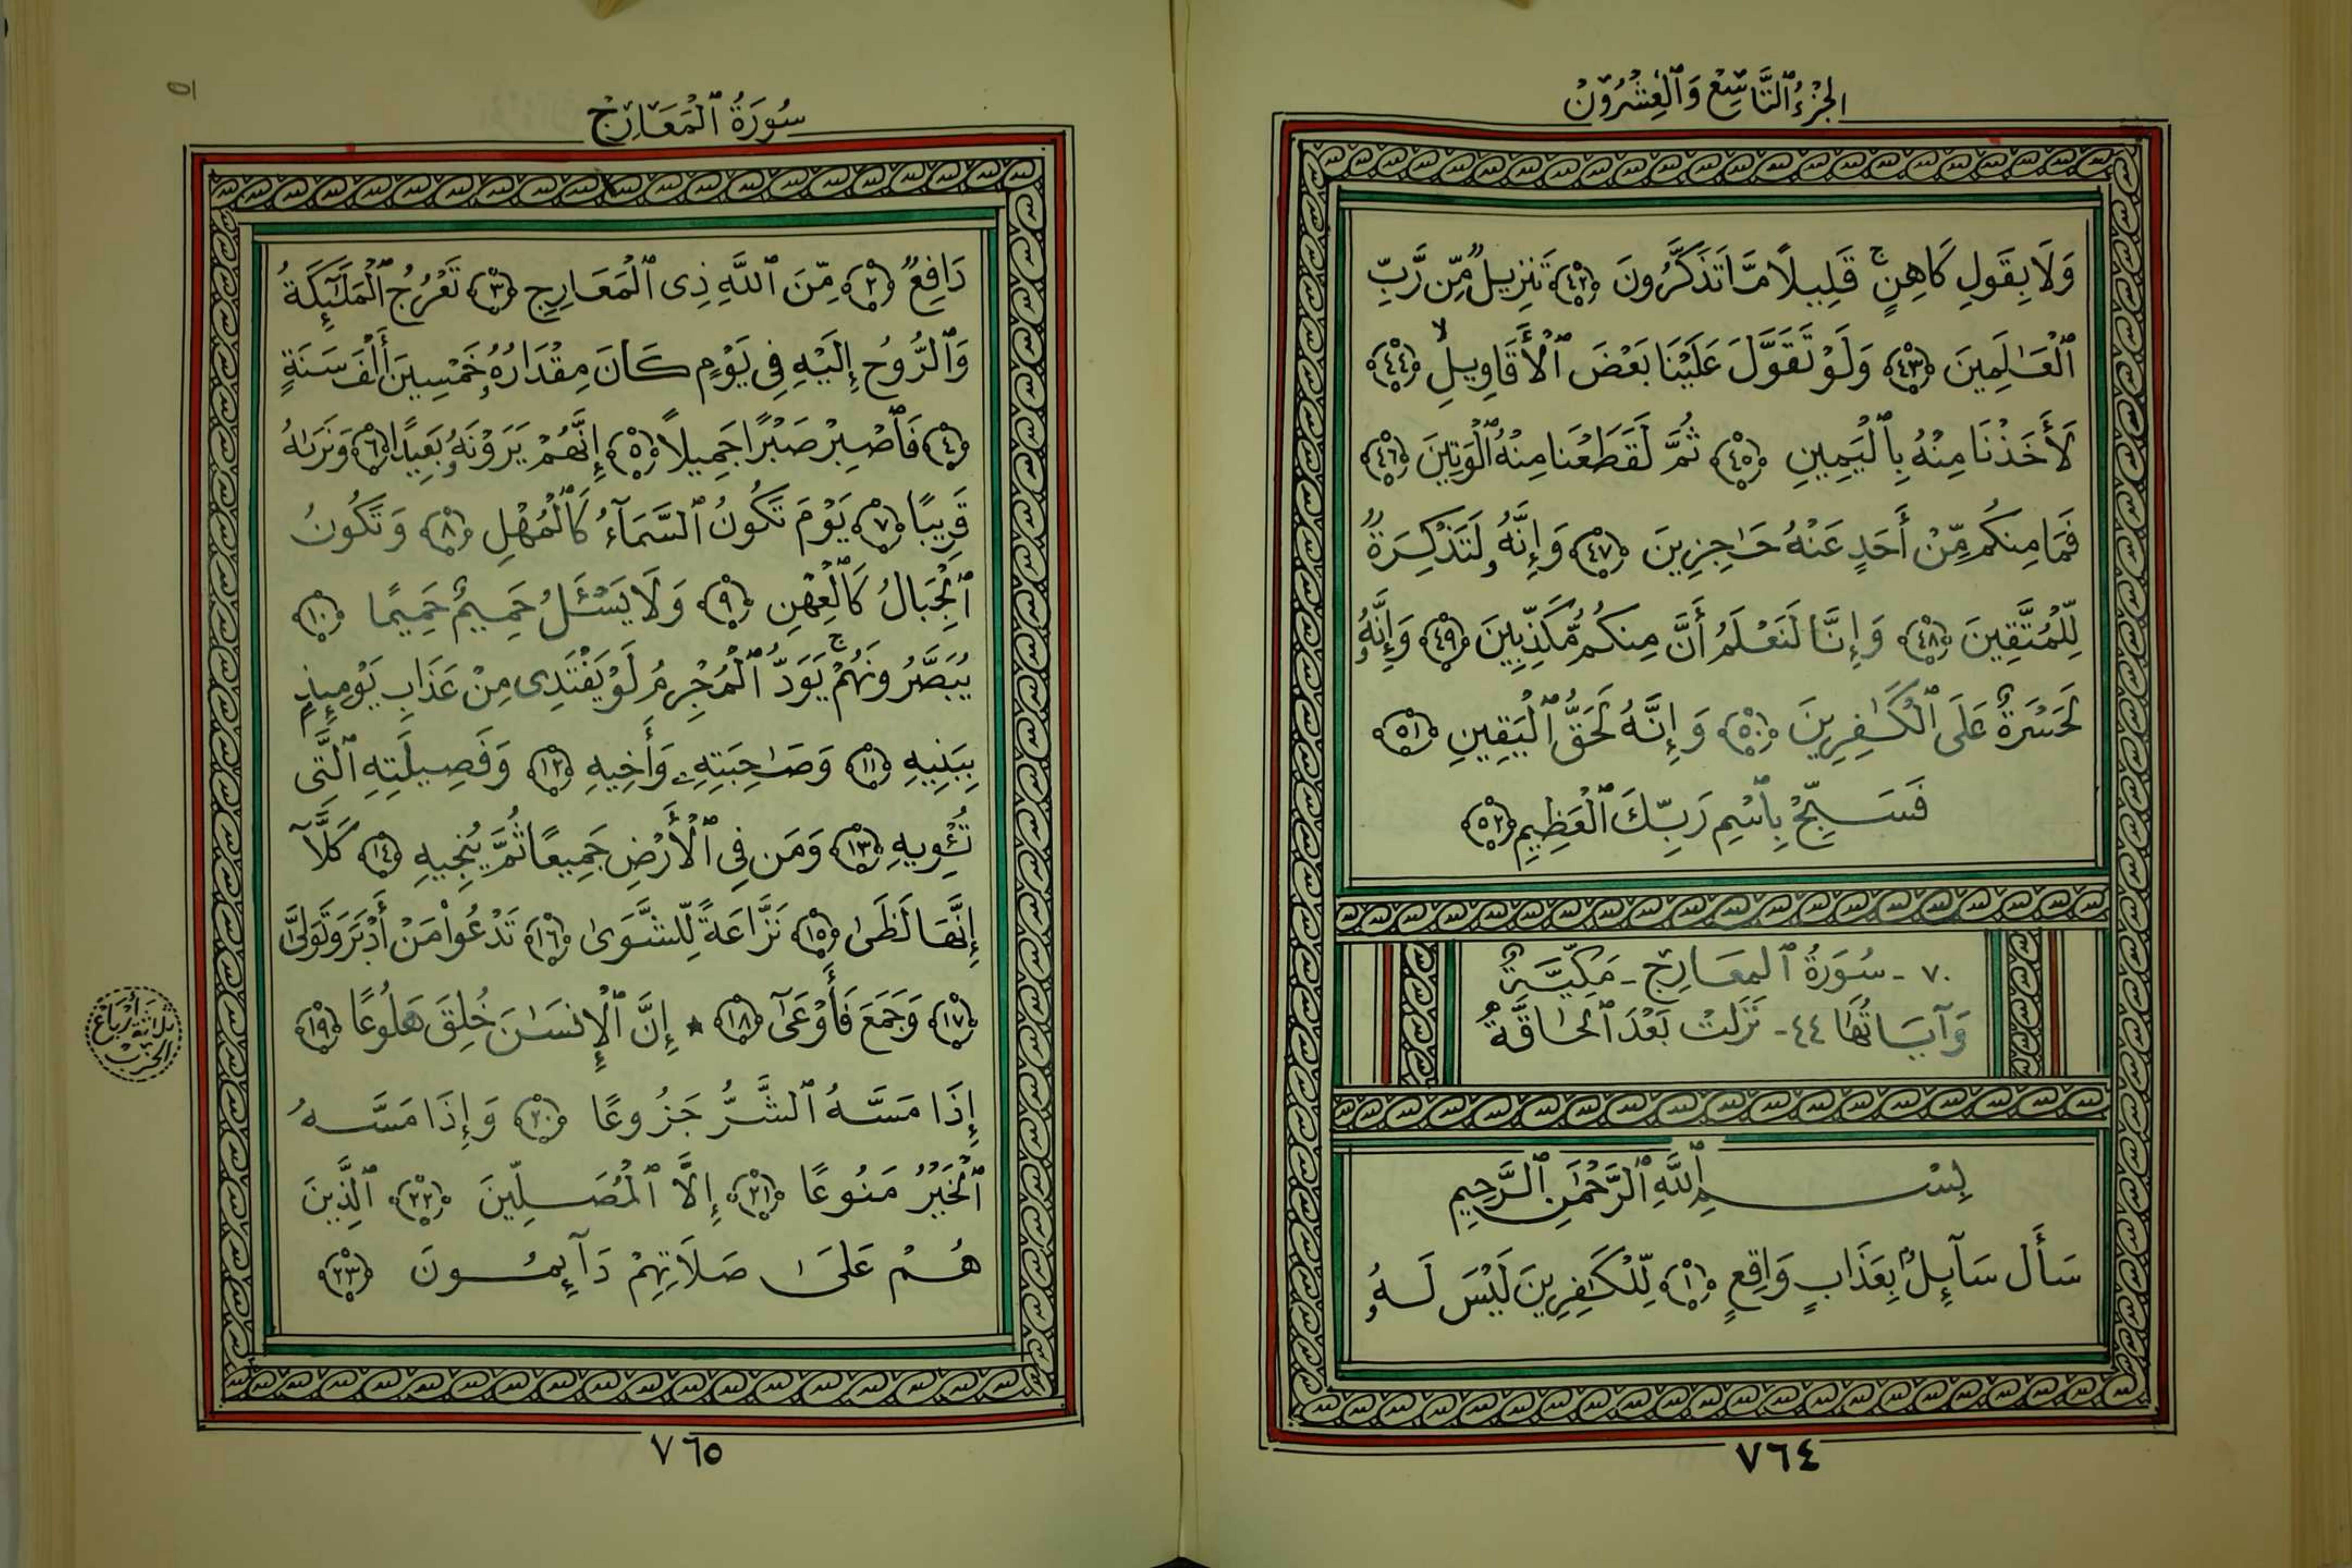 الجُزْءُ ٱلتَّاسِعُ وَٱلْعِشْرُوْنْ
وَلَا بِقَوْلِ كَاهِنٍ ۚ قَلِيلًا مَّا تَذَكَّرُونَ ﴿٤٢﴾ تَنزِيلٌ مِّن رَّبِّ
ٱلْعَـٰلَمِينَ ﴿٤٣﴾ وَلَوْ تَقَوَّلَ عَلَيْنَا بَعْضَ ٱلْأَقَاوِيلِ ۙ ﴿٤٤﴾
لَأَخَذْنَا مِنْهُ بِٱلْيَمِينِ ﴿٤٥﴾ ثُمَّ لَقَطَعْنَا مِنْهُ ٱلْوَتِينَ ﴿٤٦﴾
فَمَا مِنكُم مِّنْ أَحَدٍ عَنْهُ حَـٰجِزِينَ ﴿٤٧﴾ وَإِنَّهُۥ لَتَذْكِرَةٌ
لِّلْمُتَّقِينَ ﴿٤٨﴾ وَإِنَّا لَنَعْلَمُ أَنَّ مِنكُم مُّكَذِّبِينَ ﴿٤٩﴾ وَإِنَّهُۥ
لَحَسْرَةٌ عَلَى ٱلْكَـٰفِرِينَ ﴿٥٠﴾ وَإِنَّهُ لَحَقُّ ٱلْيَقِينِ ﴿٥١﴾
فَسَبِّحْ بِٱسْمِ رَبِّكَ ٱلْعَظِيمِ ﴿٥٢﴾
٧٠ - سُوَرَةُ ٱلمعَارِجْ - مَكِّيَّةٌ
وَآيَاتُهَا ٤٤ - نَزَلَتْ بَعْدَ ٱلحَاقَّةٌ
بِسْمِ ٱللَّهِ ٱلرَّحْمَٰنِ ٱلرَّحِيمِ
سَأَلَ سَآئِلٌۢ بِعَذَابٍ وَاقِعٍ ﴿١﴾ لِّلْكَـٰفِرِينَ لَيْسَ لَهُۥ
٧٦٤
سُورَةُ ٱلْمَعَارِجْ
دَافِعٌ ﴿٢﴾ مِّنَ ٱللَّهِ ذِى ٱلْمَعَارِجِ ﴿٣﴾ تَعْرُجُ ٱلْمَلَـٰٓئِكَةُ
وَٱلرُّوحُ إِلَيْهِ فِى يَوْمٍ كَانَ مِقْدَارُهُۥ خَمْسِينَ أَلْفَ سَنَةٍ
﴿٤﴾ فَٱصْبِرْ صَبْرًا جَمِيلًا ﴿٥﴾ إِنَّهُمْ يَرَوْنَهُۥ بَعِيدًا ﴿٦﴾ وَنَرَىٰهُ
قَرِيبًا ﴿٧﴾ يَوْمَ تَكُونُ ٱلسَّمَآءُ كَٱلْمُهْلِ ﴿٨﴾ وَتَكُونُ
ٱلْجِبَالُ كَٱلْعِهْنِ ﴿٩﴾ وَلَا يَسْـَٔلُ حَمِيمٌ حَمِيمًا ﴿١٠﴾
يُبَصَّرُونَهُمْ ۚ يَوَدُّ ٱلْمُجْرِمُ لَوْ يَفْتَدِى مِنْ عَذَابِ يَوْمِئِذٍۭ
بِبَنِيهِ ﴿١١﴾ وَصَـٰحِبَتِهِۦ وَأَخِيهِ ﴿١٢﴾ وَفَصِيلَتِهِ ٱلَّتِى
تُـْٔوِيهِ ﴿١٣﴾ وَمَن فِى ٱلْأَرْضِ جَمِيعًا ثُمَّ يُنجِيهِ ﴿١٤﴾ كَلَّآ
إِنَّهَا لَظَىٰ ﴿١٥﴾ نَزَّاعَةً لِّلشَّوَىٰ ﴿١٦﴾ تَدْعُوا۟ مَنْ أَدْبَرَ وَتَوَلَّىٰ
﴿١٧﴾ وَجَمَعَ فَأَوْعَىٰٓ ﴿١٨﴾ ★ إِنَّ ٱلْإِنسَـٰنَ خُلِقَ هَلُوعًا ﴿١٩﴾
إِذَا مَسَّهُ ٱلشَّرُّ جَزُوعًا ﴿٢٠﴾ وَإِذَا مَسَّهُ
ٱلْخَيْرُ مَنُوعًا ﴿٢١﴾ إِلَّا ٱلْمُصَلِّينَ ﴿٢٢﴾ ٱلَّذِينَ
هُمْ عَلَىٰ صَلَاتِهِمْ دَآئِمُونَ ﴿٢٣﴾
ثَلَاثَةُ أَرْبَاعْ
الحِزْبْ
٧٦٥